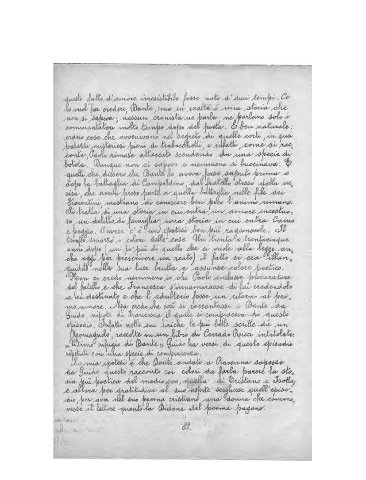 questo fatto d'amore irresistibile fosse noto a' suoi tempi. Ce
lo vuol far credere Dante, ma in realtà è una storia che
non si sapeva; nessun cronista ne parla: ne parlano solo i
commentatori molto tempo dopo del poeta. È ben naturale:
erano cose che avvenivano nel segreto di quelle corti, in quei
palazzi misteriosi pieni di trabocchelli, e infatti come si rac
conta, Paolo rimase attaccato scendendo da una specie di
botola. Dunque non si sapeva e nemmeno si bucinava. E
quelli che dissero che Dante lo aveva forse saputo prima o
dopo la battaglia di Campaldino, dal fratello stesso della uc
cisa, che aveva preso parte a quella battaglia nelle file dei
Fiorentini mostrano di conoscer ben poco l'animo umano.
Si tratta di una storia in cui entra un amore incestuo
so, un delitto di famiglia, una storia in cui entra
e peggio. Invece c'è un'ipotesi ben più ragionevole. Il
tempo smorzò i colori delle cose. Un trenta o trentacinque
anni dopo (un po' più di quello che ci vuole alla legge an
che oggi per prescrivere un reato) il fatto si era
quindi nella sua luce brutta e assunse colore poetico.
credo nemmeno che Paolo andasse procuratore
del fratello e che Francesca s'innamorasse di lui credendolo
a lei destinato e che l'adulterio fosse un ritorno al pri
mo amore. Ma credo che così si raccontasse a Dante da
Guido nipote di Francesca il quale si compiaceva di questo
episodio. Infatti nelle sue rime, le più belle scritte da un
Romagnolo, raccolte in un libro da Corrado Ricci intitolato:
"L'Ultimo rifugio di Dante", Guido ha versi di questo episodio
ripetuti con una specie di compiacenza.
La mia ipotesi è che Dante andato a Ravenna sapesse
da Guido questo racconto coi colori da farla parere la sto
ria più poetica del medio evo, quella di Tristano e Isotta,
e allora per gratitudine al suo ospite scegliesse quell'episo
dio, per aver nel suo poema cristiano una donna che commo
vesse il lettore quanto la Didone del poema pagano.
89.